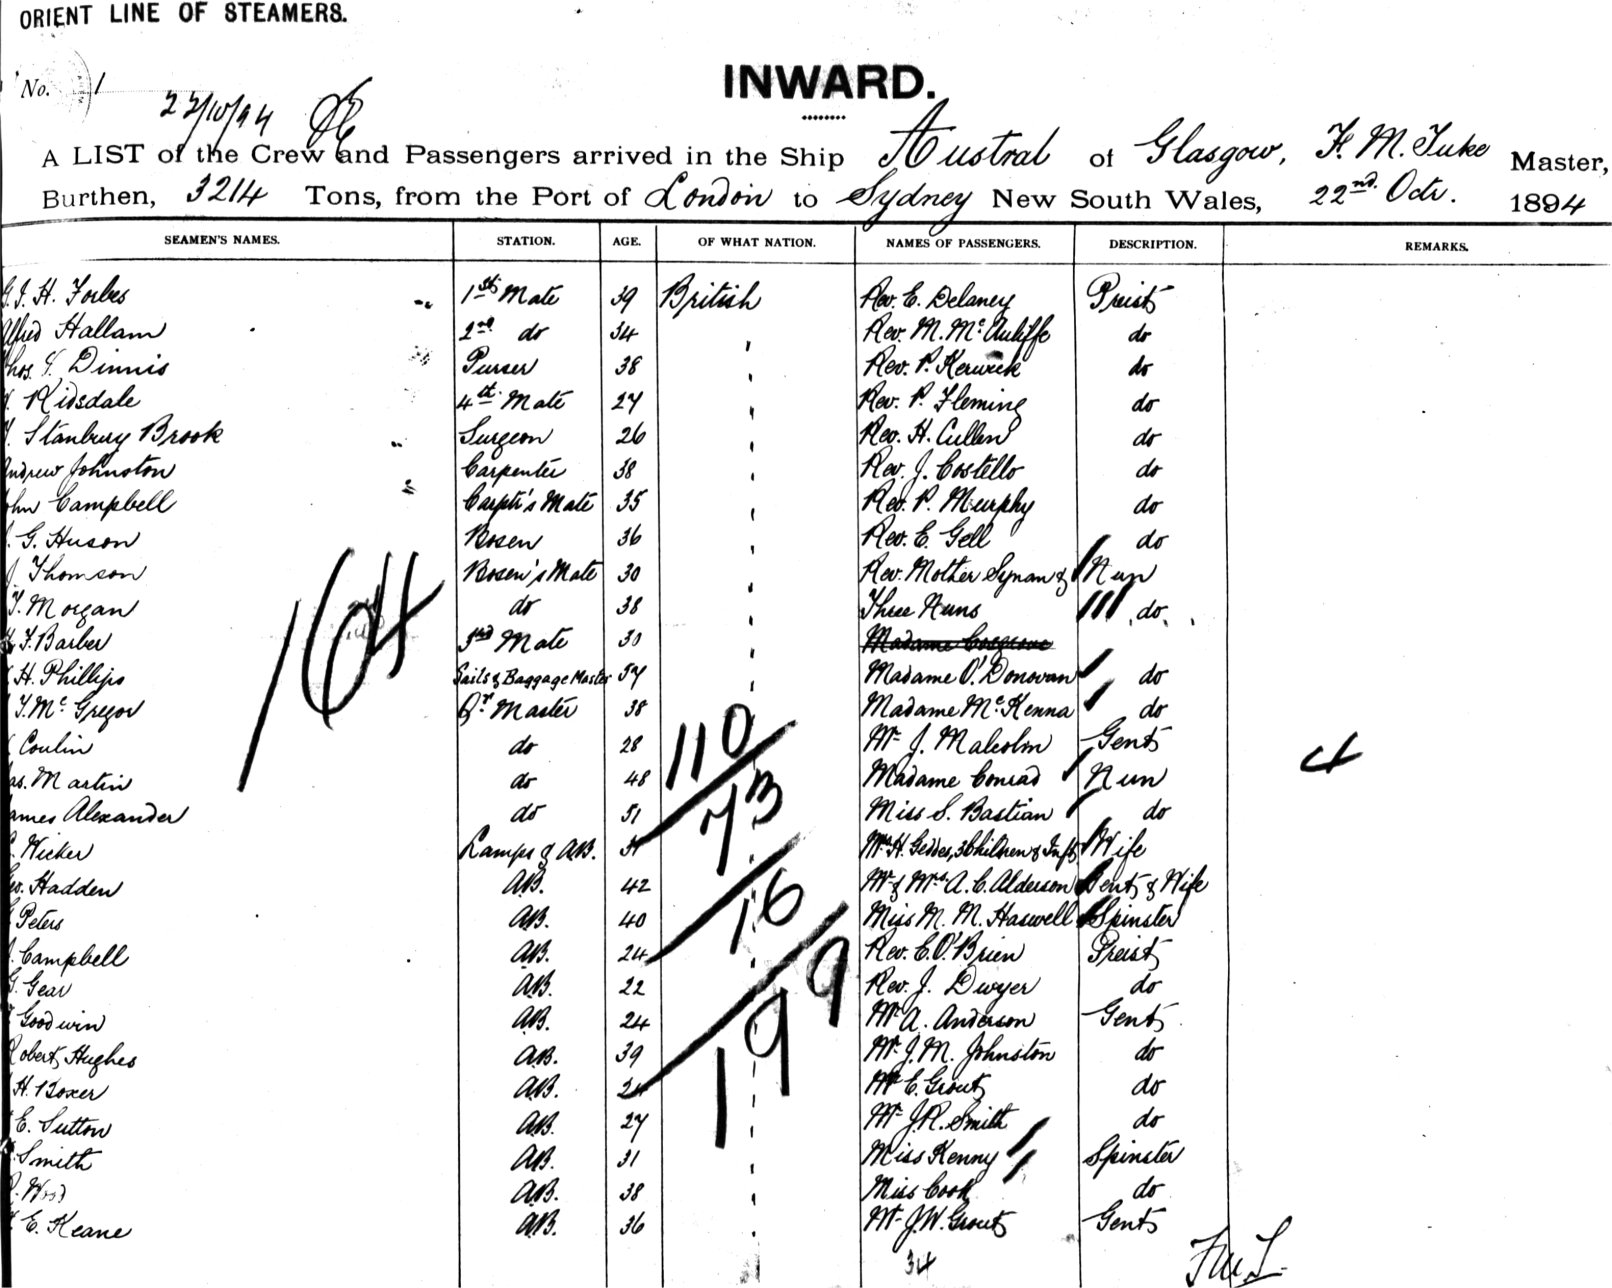 ORIENT LINE OF STEAMERS.
INWARD.
No. 1
22/10/94
A LIST of the Crew and Passengers arrived in the Ship Austral of Glasgow, F. M. Tuke Master,
Burthen, 3214 Tons, from the Port of London to Sydney New South Wales, 22nd. Octr. 1894
SEAMEN'S NAMES. STATION. AGE. OF WHAT NATION. NAMES OF PASSENGERS. DESCRIPTION. REMARKS.
H. Forbes 1st Mate 39 British Rev. E. Delaney Preist
Alfred Hallam 2nd do 34 Rev. M. McAuliffe do
Dinnis Purser 38 Rev. P. Kerwick do
Ridsdale 4th Mate 27 Rev. P. Fleming do
Stanbury Brook Surgeon 26 Rev. H. Cullen do
Andrew Johnston Carpenter 38 Rev. J. Costello do
John Campbell Carptr's Mate 35 Rev. P. Murphy do
G. Huson Bosen 36 Rev. E. Gell do
J. Thomson Bosen's Mate 30 Rev. Mother Synan & Nun
T. Morgan do 38 Three Nuns do
F. Barber 3rd Mate 30 Madame Cosgrove
H. Phillips Sails & Baggage Master 57 Madame O'Donovan do
T. McGregor Qr Master 38 Madame McKenna do
Coulin do 28 Mr J. Malcolm Gent
Jas. Martin do 48 Madame Conrad Nun
James Alexander do 51 Miss S. Bastian do
Wicker Lamps & AB. Mrs H. Geddes, 3 Children & Inft Wife
Geo. Hadden AB. 42 Mr & Mrs A. C. Alderson Gent & Wife
Peters AB. 40 Miss M. M. Haswell Spinster
J. Campbell AB. 24 Rev. C. O'Brien Preist
G. Gear AB. 22 Rev. J. Dwyer do
Goodwin AB. 24 Mr A. Anderson Gent
Robert Hughes AB. 39 Mr J. M. Johnston do
H. Boxer AB. Mr E. Grout do
E. Sutton AB. 27 Mr J. R. Smith do
Smith AB. 31 Miss Kenny Spinster
Wood AB. 38 Miss Cook do
E. Keane AB. 36 Mr J. W. Grout Gent
164
110
73
16
199
4
34